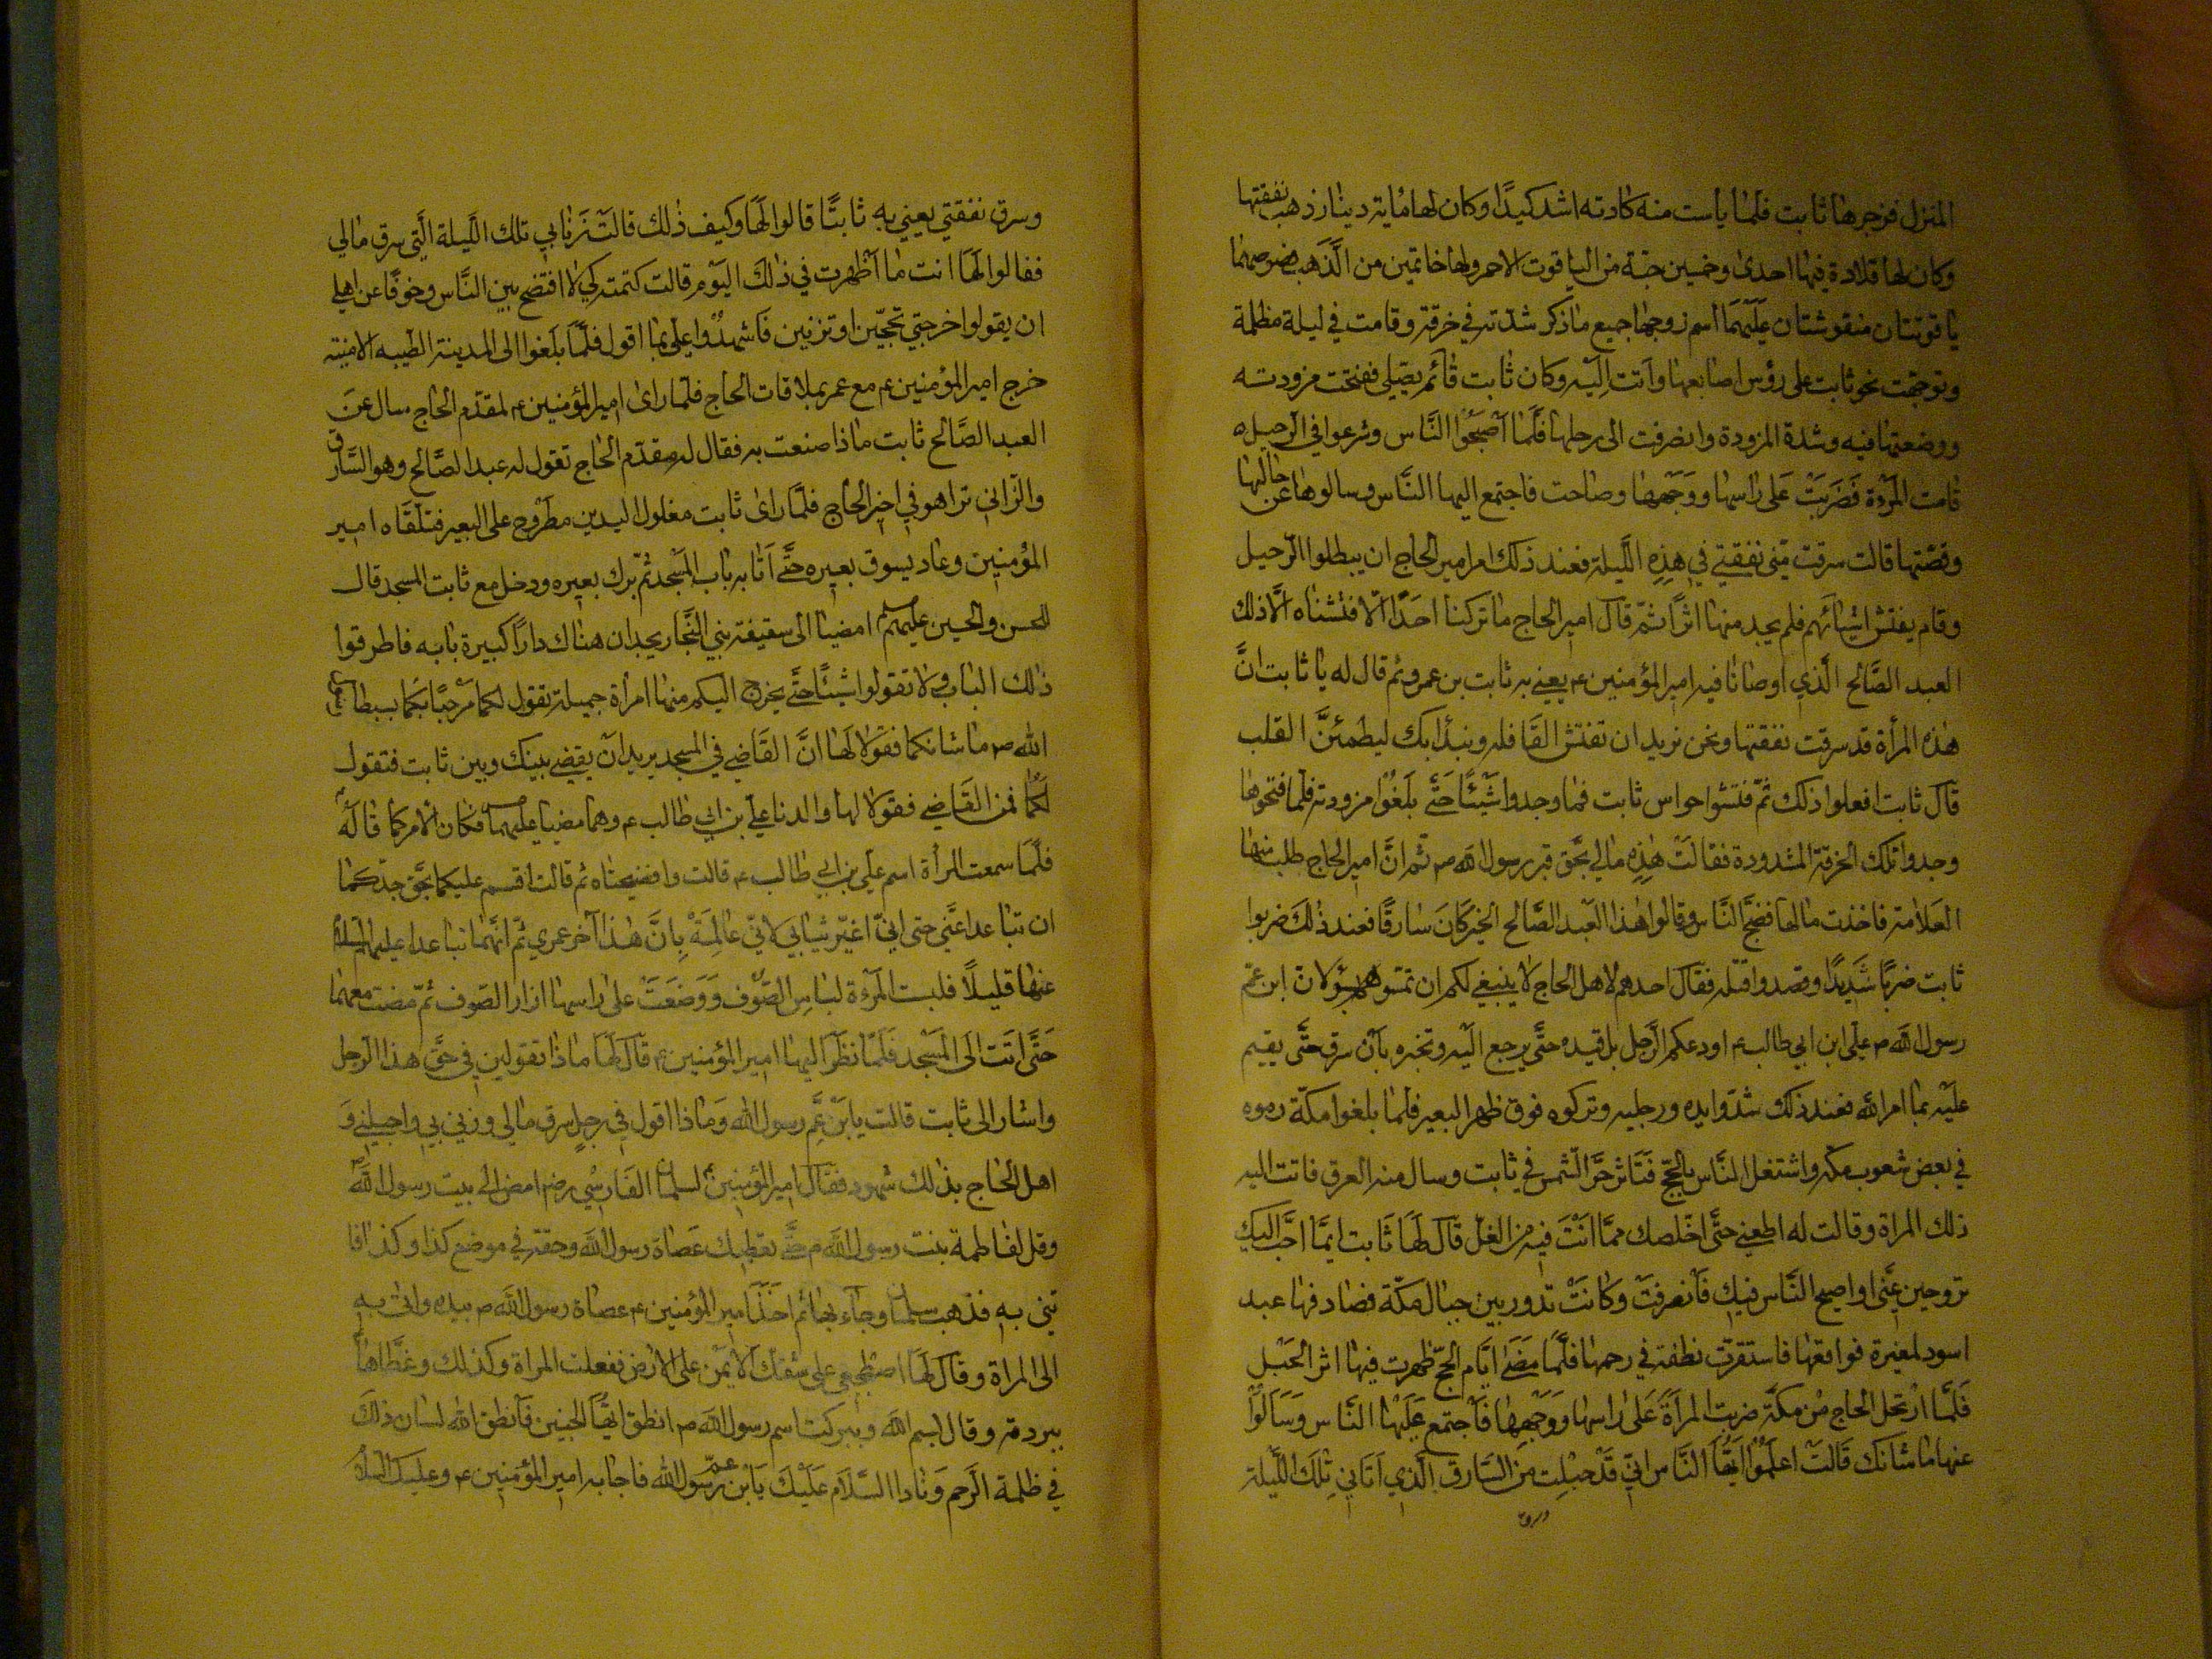 المنزل فزجرها ثابت فلما يأست منه كادته اشد كيدًا وكان لها مائة دينار ذهب نفقتها
وكان لها قلادة فيها احدى وخمسين حبّة من الياقوت الاحمر ولها خاتمين من الذّهب فصوصهما
ياقوتتان منقوشتان عَلَيْهِمَا اسم زوجها جميع ما ذكر شدّته في خرقة وقامت في ليلة مظلمة
وتوجّهت نحو ثابت على رؤس اصابعها وأتت اِليْه وكان ثابت قائم يصَلي ففتحت مزودته
ووضعتها فيه وشدة المزودة وانصرفت الى رحلها فلمّا اَصْبَحُوا النّاس وشرعوا في الرحيل
قامت المرْءة فَضَرَبَتْ عَلى رأسها ووَجْهِهَا وصاحت فاجتمع اليها النّاس وسالوها عن حالها
وقصّتها قالت سرقت منّي نفقتي في هٰذِهِ اللّيلة فعند ذلك امر امير الحاج ان يبطلوا الرّحيل
وقام يفتش اشيائهم فلم يجد منها اثرًا ثمّ قال امير الحاج ما تركنا احَدًا الّا فتشناه الّا ذلك
العبد الصّالح الّذي اوصانا فيه امير المؤمنين ع يعني به ثابت بن عمرو ثم قال له يا ثابت انَّ
هذه المرأة قد سرقت نفقتها ونحن نريد ان نفتش القافله ونبدأ بك ليطمئنَّ القلب
قال ثابت افعلوا ذلك ثمّ فتشوا حواس ثابت فما وجدوا شَيْئًا حَتّى بلَغُوا مزودته فلما فتحوها
وجدوا تلك الخرقة المشدودة فقالت هٰذِهِ مالي بحَّق قبر رسول الله ص ثم انَّ امير الحاج طلب منها
العَلامة فاخذت مالها فضجَّ النّاس وقالوا هٰذا العَبد الصّالح الخير كَانَ سارقًا فعند ذٰلك ضربوا
ثابت ضربًا شَدِيدًا وقصدوا قتله فقال احدهم لاهل الحاج لا ينبغي لكم ان تمسّوهم بسؤ لانّ ابن عمّ
رسول الله ص علي ابن ابي طالب ع اودعكم الرّجل بل قيده حتّى يرجع اليْه وتخبره بأن سرق حتّى يقيم
عليْه بما امر الله فعند ذلك شدّوا يده ورجليه وتركوه فوق ظهر البعير فلما بلغوا مكّة رموه
في بعض شعوب مكه واشتغل النّاس بالحجّ فَتَاثر حرَّ الشمس في ثابت وسال منه العرق فاتت اليه
ذلك المراة وقالت له اطعني حتَّى اخلصك ممّا انْتَ فيه من الغلّ قال لَهَا ثَابت ايمّا احَّب اليك
تروحين عَنّي او اصيح النّاس فيك فانصرفتْ وكانتْ تدور بين جبال مكّة فصادفها عبد
اسود لمغيرة فواقعها فاستقرّت نطفته في رحمها فلمّا مَضَى ايّام الحجّ ظهرت فيها اثر الحَبْل
فَلمّا ارتحل الحاج من مكّة ضربت المرأةَ عَلى رأسها ووَجْهِهَا فَاجتمع عَلَيْها النّاس وَسَالُوا
عنها ما شانك قالتْ اعلَمُوا ايّها النّاس انّي قَدْ حبلت مِنَ السّارق الّذي اَتَاني تِلك اللَّيْلة
وسرق
وسرق نفقتي يعني به ثابتًا قالوا لَهَا وكيف ذٰلك قالتْ زنا بي تلك اللّيلة الّتي سرق مالي
فقالوا لَهَا انت ما اَظْهرت في ذٰلك اليوم قالت كتمته لكي لا افتضح بين النّاس وخوفًا عن اهلي
ان يقولوا خرجتي تحجّين او تزنين فَاشهدُوا عليّ بما اقول فلمّا بلَغوا الى المدينة الطيبه الامينة
خرج امير المؤمنين ع مع عمر بملاقات الحاج فلما راى امير المؤمنين ع لمقدّم الحاج سال عن
العبد الصّالح ثابت ماذا صنعت به فقال له مقدّم الحاج تقول له عبد الصّالح وهو السّارق
والزّاني تراهو في اخر الحاج فلمّا راى ثابت مغلول اليدين مطروح على البعير فتلقّاه امير
المؤمنين وعاد يسوق بعيره حتّى اَتا به باب المسْجد ثمّ برك بعيره ودخل مع ثابت المسجد قال
للحسن والحسين عليهم السلام امضيا الى سقيفة بني النّجار يجدان هناك دارًا كبيرة بابه فاطرقوا
ذٰلك الباب ولا تقولوا شيئًا حتّى يخرج اليكم منها امرأة جميلة تقول لكما مرْحبًا بكما يسبطا
الله ص ما شانكما فقولا لَهَا انَّ القَاضي في المسجد يريد ان يقضي بينك وبين ثابت فتقول
لَكُما فمن القَاضي فقولا لها والدنا علي بن ابي طالب ع وهما مضيا عليهما فكان الامر كما قال لَهُ
فلمّا سمعت المرأة اسم علي بن ابي طالب ع قالت وافضيحتاه ثم قالت اقسم عليكما بحَّق جدّكما
ان تباعدا عنّي حتى انيّ اغيّر ثيابي لانيّ عَالِمَةْ بِانَّ هٰذا آخر عمري ثمّ انّهما تباعدا عليهما السلام
عنها قليلًا فلبست المرْءة لباس الصّوف وَوَضَعَتْ على رأسها ازار الصّوف ثمّ مضت معهما
حَتّى اَتَت الَى المَسْجد فلمّا نظر اليها امير المؤمنين ع قال لَهَا ماذا تقولين في حقَّ هذا الرجل
واشار الى ثابت قالت يابْن عَمِّ رسول الله وَماذا اقول في رجلٍ سرق مالي وزنى بي واحبلني وَ
اهل الحاج بذٰلك شهود فقال امير المؤمنين ع لسلمان الفَارسْي رضه امض الى بيت رسول الله ص
وقل لفاطمة بنت رسول الله ص حتّى تعطيك عَصاة رسول الله وحقته في موضع كذا وكذا فا
تيني به فذهب سلمان وجآء بها ثم اخَذَ امير المؤمنين ع عصاة رسول الله ص بيده واتى به
الى المراة وقال لَهَا اضطجعي على شقك الايْمَن على الارض ففعلت المراة وكذلك وغطّاها
ببردة وقال بسم الله وببركت اسم رسول الله ص انطق ايّها الجنين فانطق الله لسان ذٰلك
في ظلمة الرّحم وَنادا السَّلام عَلَيْكَ يَابْن عمّ رّسول الله فاجابه امير المؤمنين ع وعليك السلام